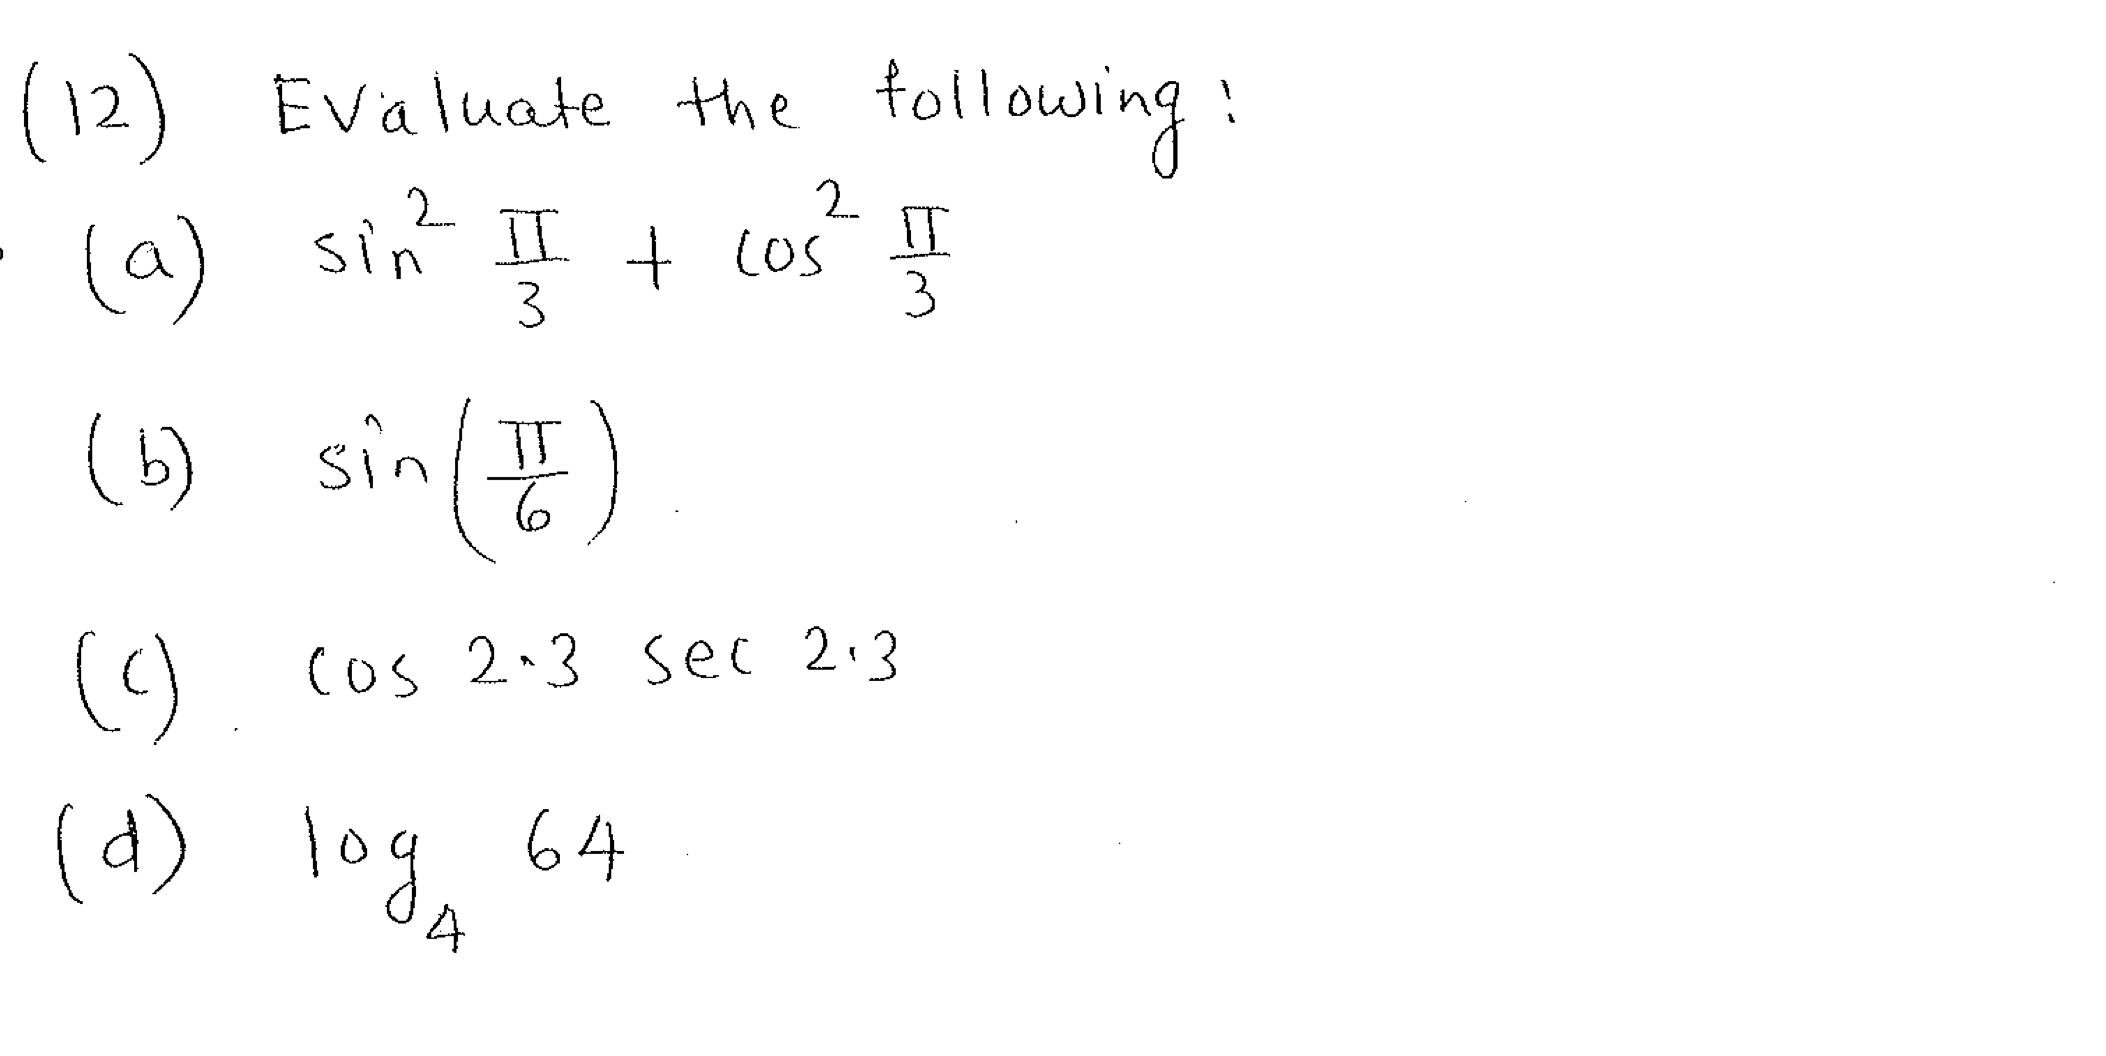 (12) Evaluate the following:
(a) sin² π/3 + cos² π/3
(b) sin(π/6)
(c) cos 2.3 sec 2.3
(d) log₄ 64